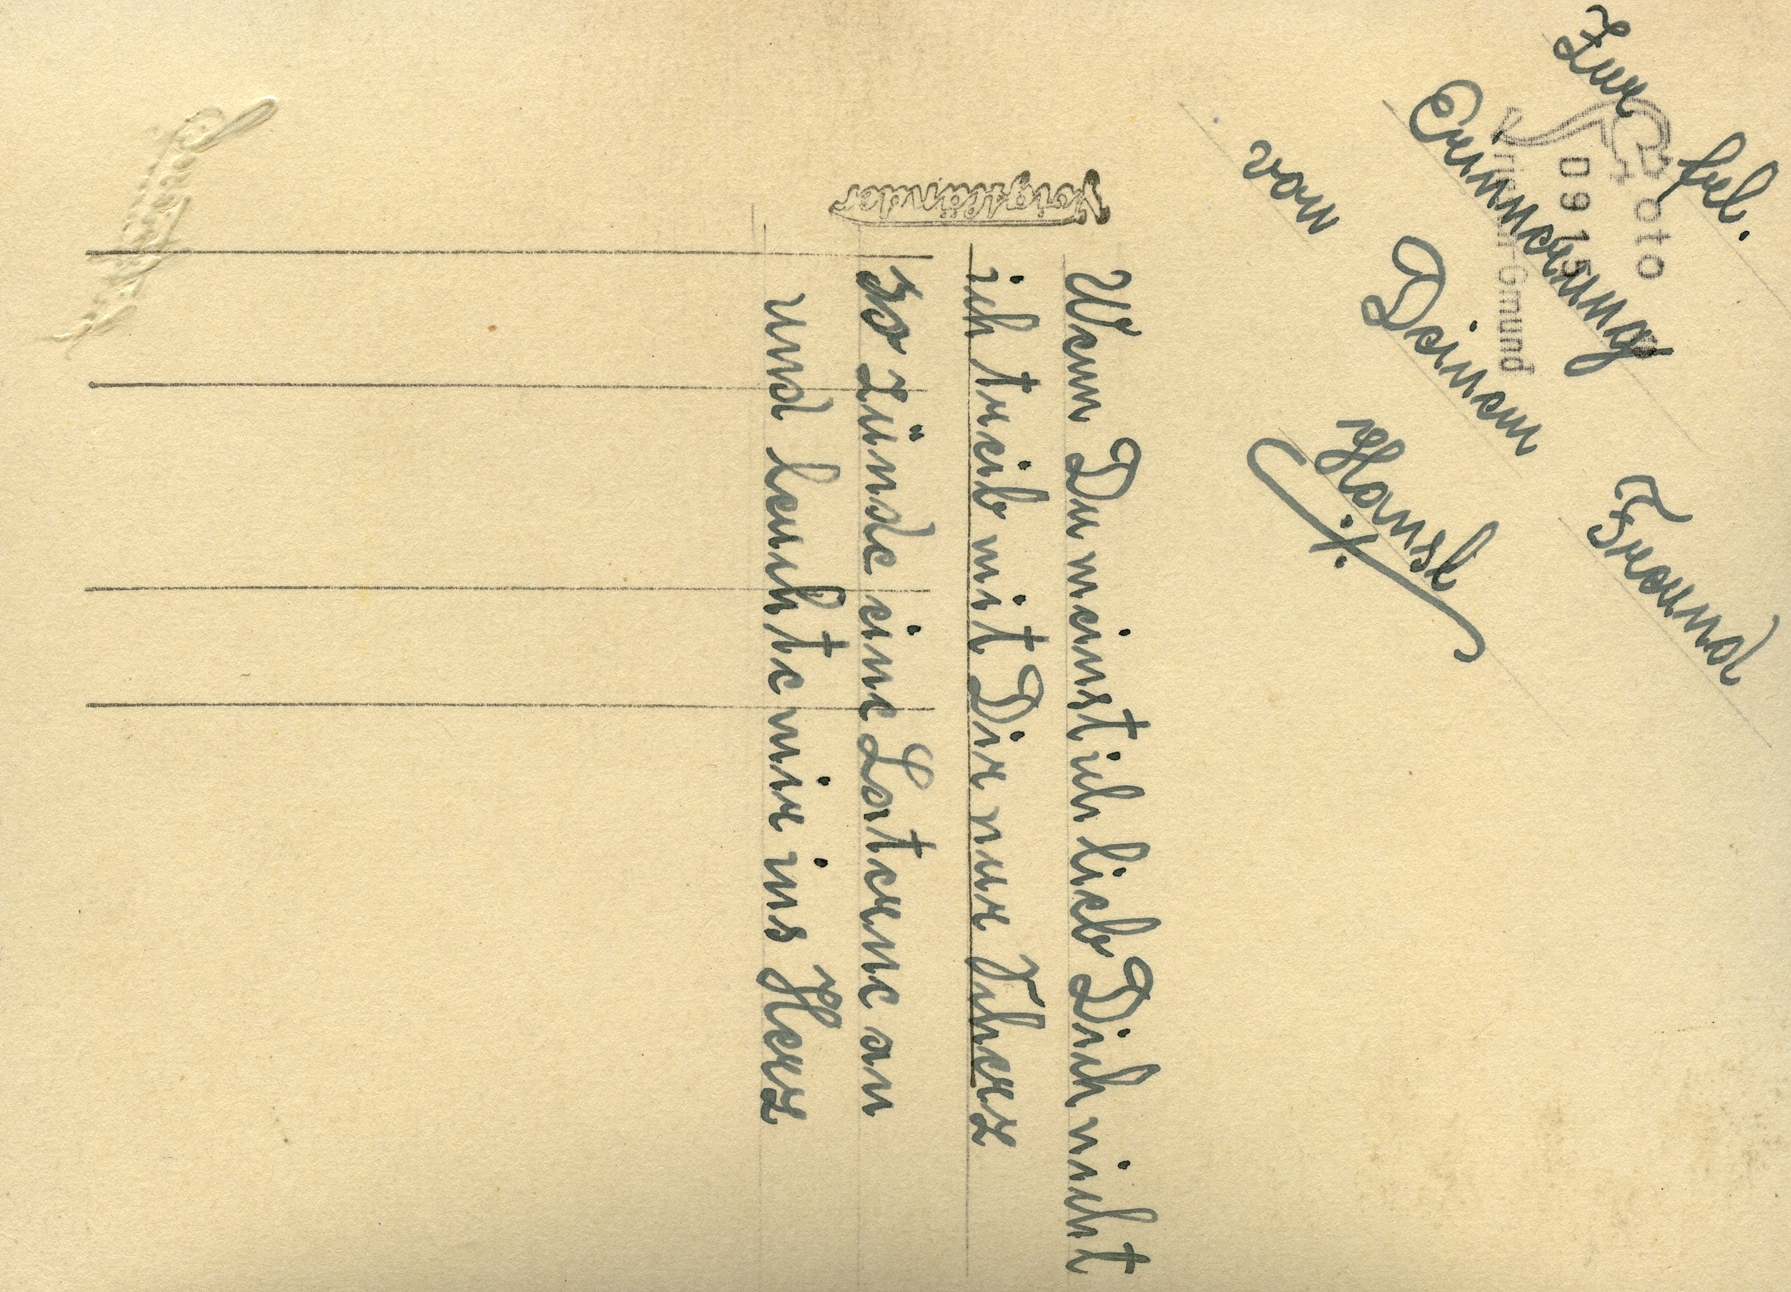 Zur frl.
Erinnerung
von Deinem Freund
Hansl
Wenn Du meinst ich lieb Dich nicht
ich treib mit Dir nur Scherz
so zünde eine Laterne an
und leuchte mir ins Herz
Voigtländer
Foto
0915
Gmund